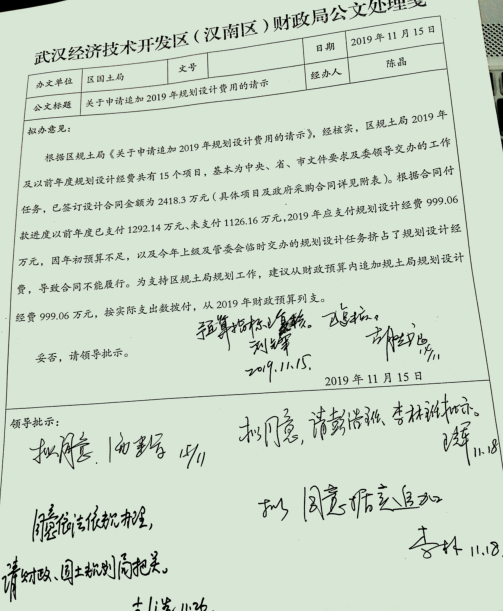 武汉经济技术开发区（汉南区）财政局公文处理笺
办文单位 区国土局 文号 日期 2019年11月15日
公文标题 关于申请追加2019年规划设计费用的请示 经办人 陈晶
拟办意见：
根据区规土局《关于申请追加2019年规划设计费用的请示》，经核实，区规土局2019年
及以前年度规划设计经费共有15个项目，基本为中央、省、市文件要求及委领导交办的工作
任务，已签订设计合同金额为2418.3万元（具体项目及政府采购合同详见附表）。根据合同付
款进度以前年度已支付1292.14万元、未支付1126.16万元，2019年应支付规划设计经费999.06
万元，因年初预算不足，以及今年上级及管委会临时交办的规划设计任务挤占了规划设计经
费，导致合同不能履行。为支持区规土局规划工作，建议从财政预算内追加规土局规划设计
经费999.06万元，按实际支出数拨付，从2019年财政预算列支。
妥否，请领导批示。
预算指标已复核。
2019.11.15.
15/11
2019年11月15日
领导批示：
拟同意，请彭浩班、李林班批示。
11.18
拟同意. 15/11
拟同意据实追加
李林 11.18.
同意依法依规办理，
请财政、国土规划局把关。
11.26